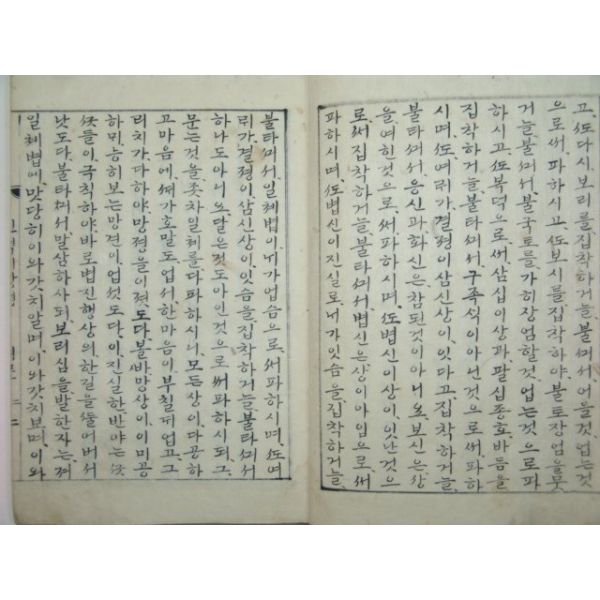 고, ᄯᅩ다시, 보리를집착하거늘, 불ᄭᅴ서, 어들것, 업는것
으로ᄡᅥ, 파하시고, ᄯᅩ보시를집착하야, 불토장엄을뭇
거늘, 불ᄭᅴ서, 불국토를가히장엄할것, 업는것으로파
하시고, ᄯᅩ복덕으로, ᄡᅥ, 삼십이상과, 팔십종호바듬을
집착하거늘, 불타ᄭᅴ서, 구족색이아닌것으로, ᄡᅥ, 파하
시며, ᄯᅩ여ᄅᆡ가, 결졍이삼신상이, 잇다고, 집착하거늘,
불타ᄭᅴ서, 응신과화신은, 참된것이아니오, 보신은, 상
을여흰것으로, ᄡᅥ, 파하시며, ᄯᅩ법신이상이, 잇난것으
로, ᄡᅥ, 집착하거늘, 불타ᄭᅴ서, 법신은상이아임으로, ᄡᅥ
파하시며, ᄯᅩ법신이진실로, ᄂᆡ가잇슴을, 집착하거늘,
불타ᄭᅴ서, 일체법이, ᄂᆡ가업슴으로, ᄡᅥ파하시며, ᄯᅩ여
ᄅᆡ가, 결졍이삼신상이, 잇슴을, 집착하거늘, 불타ᄭᅴ서
하나도아니오, 달은것도아인것으로, ᄡᅥ파하시되, 그
문는것을, 좃차, 일체를다파하시니, 모든상이, 다공하
고마음에, ᄭᅴ가호말도업서, 한마음이, 부칠ᄃᆡ업고, 그
리치가, 다하야, 망졍을이졋도다, 불바망상이, 이미공
하ᄆᆡ, 능히보는망견이, 업섯도다, 이, 진실한반야는,
들이, 극칙하야, 바로법신행상의, 한길을, ᄯᅮᆯ어버서
낫도다, 불타ᄭᅴ서말삼하사ᄃᆡ, 보리심을발한자는,
일체법에, 맛당히이와갓치알며, 이와갓치보며, 이와